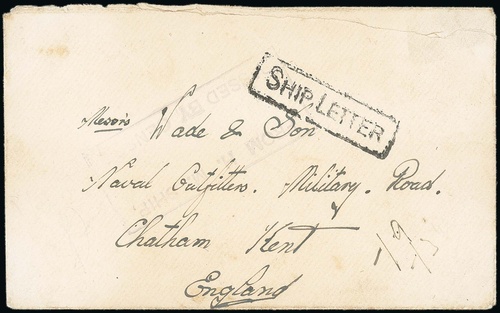 SHIP LETTER
Messrs Wade & Son
Naval Outfitters. Military. Road.
Chatham Kent
England